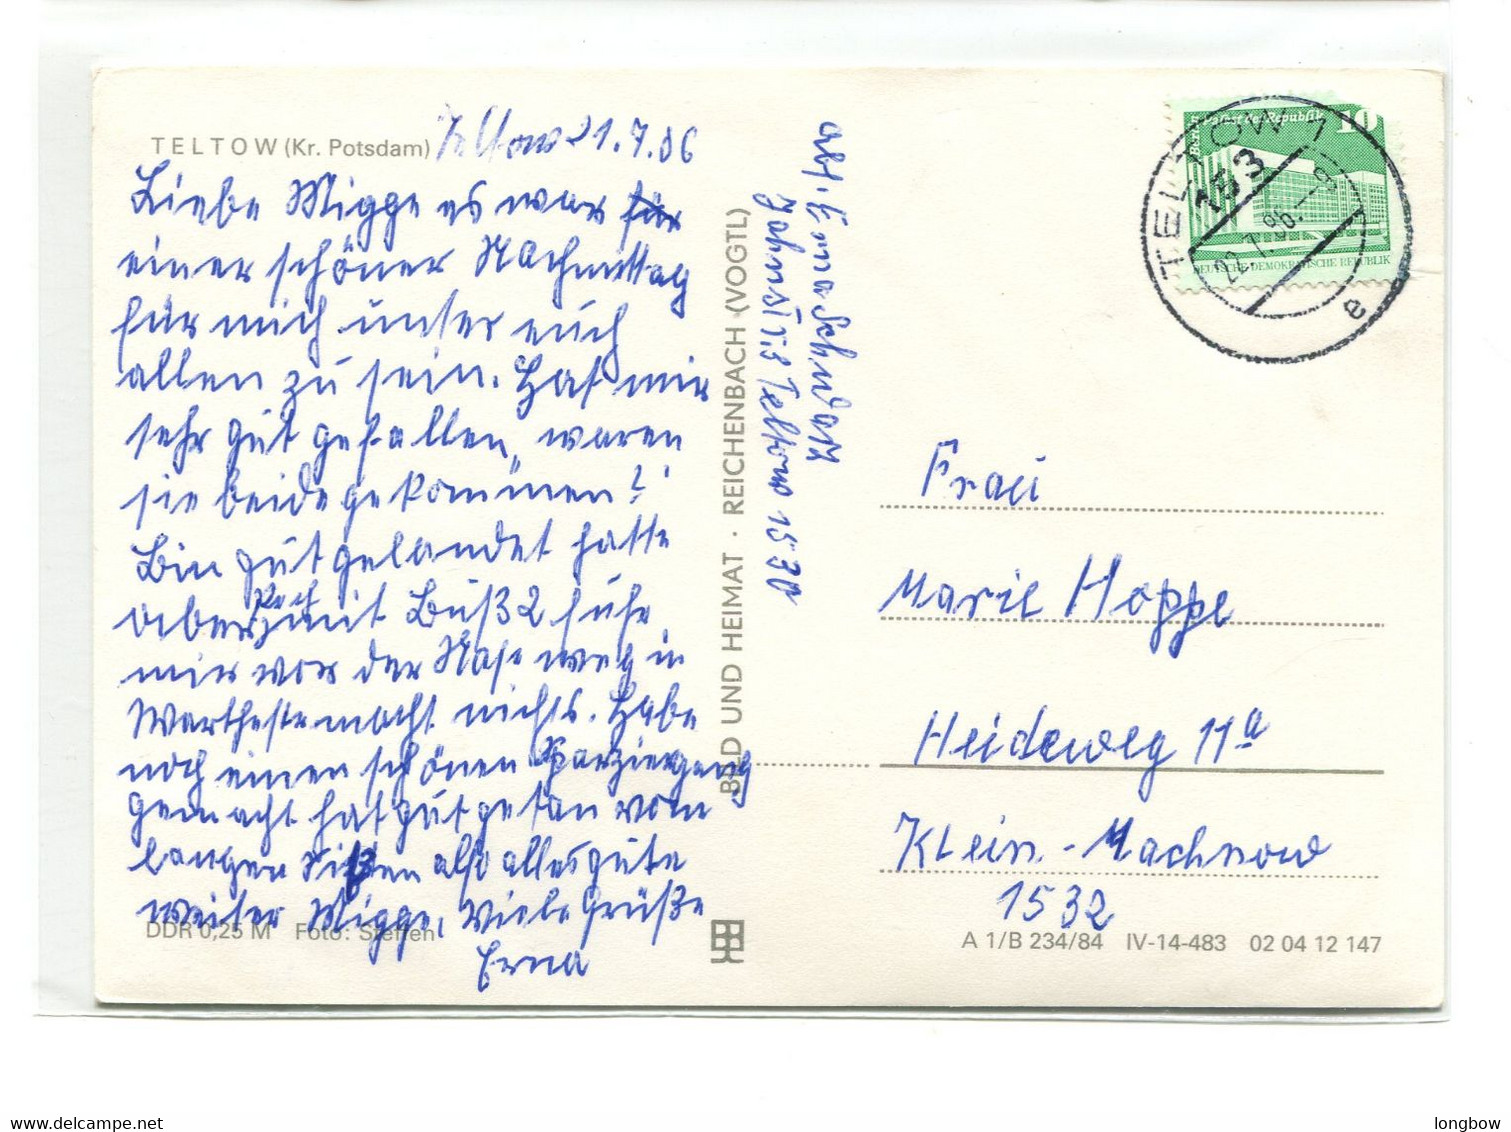 TELTOW (Kr. Potsdam)
Teltow 21.7.86
Liebe Migge es war für
einer schöner Nachmittag
für mich unter euch
allen zu sein. Hat mir
sehr gut gefallen, waren
sie beide gekommen?
Bin gut gelandet hatte
aber Pech mit Buß 2 fuhr
mir vor der Nase weg in
macht nichts. Habe
noch einen schönen Sparziergang
gemacht hat gut getan vom
langen Sitzen also alles gute
weiter Migge, Viele Grüße
Erna
DDR 0,25 M Foto: Steffen
BILD UND HEIMAT · REICHENBACH (VOGTL)
Abs. Erna
Jahnstr. 8 Teltow 1530
10
Berlin, Palast der Republik
DEUTSCHE DEMOKRATISCHE REPUBLIK
TELTOW 1
153
22.7.86.--9
e
Frau
Marie Hoppe
Heideweg 11a
Klein-Machnow
1532
A 1/B 234/84 IV-14-483 02 04 12 147
longbow